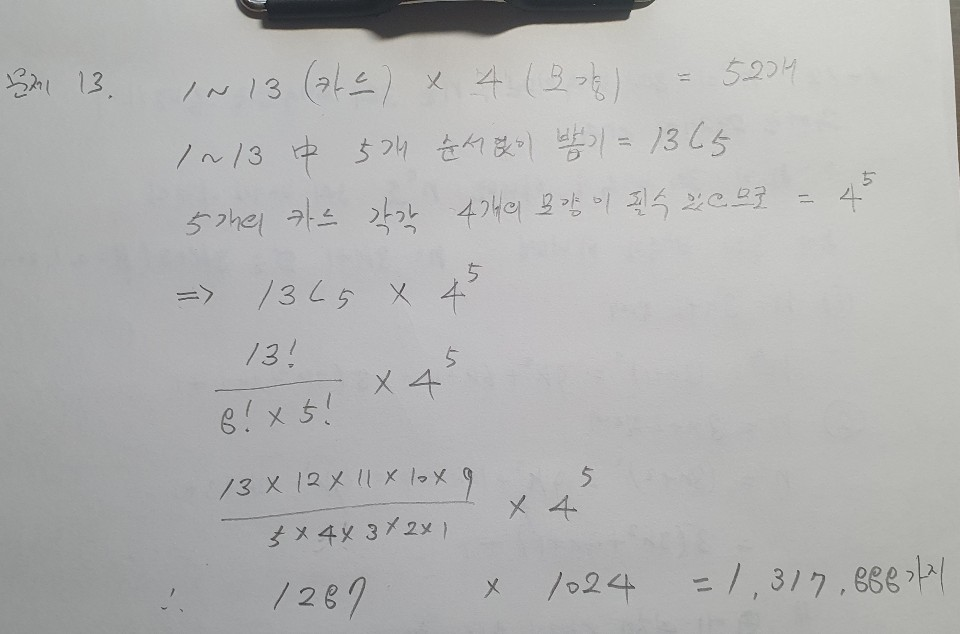 문제 13. 1~13 (카드) × 4 (모양) = 52개
1~13 中 5개 순서없이 뽑기 = 13C5
5개의 카드 각각 4개의 모양이 필수 있으므로 = 4^5
=> 13C5 × 4^5
13! / 8! × 5! × 4^5
13 × 12 × 11 × 10 × 9 / 5 × 4 × 3 × 2 × 1 × 4^5
∴ 1287 × 1024 = 1,317,888가지